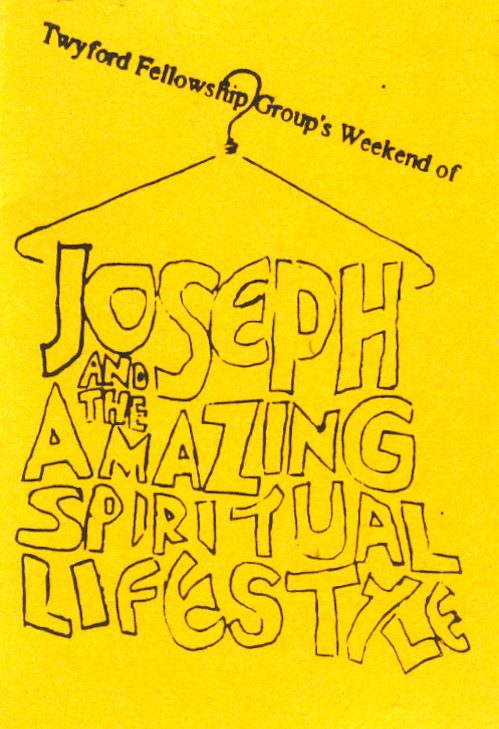 Twyford Fellowship Group's Weekend of
JOSEPH
AND
THE
AMAZING
SPIRITUAL
LIFESTYLE